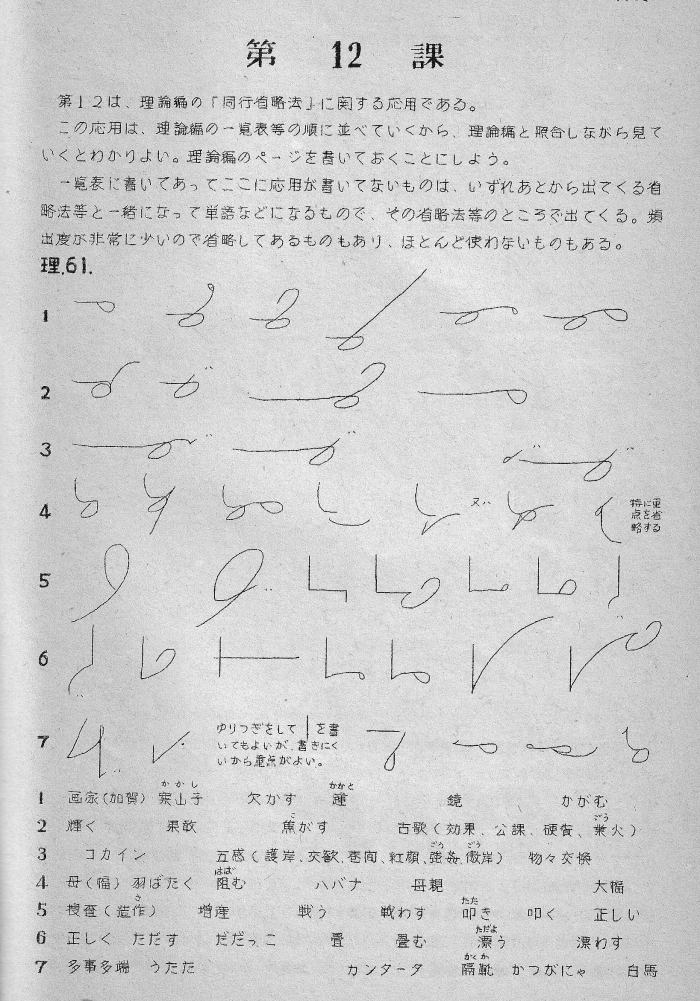 第 12 課
第12は、理論編の「同行省略法」に関する応用である。
この応用は、理論編の一覧表等の順に並べていくから、理論編と照合しながら見て
いくとわかりよい。理論編のページを書いておくことにしよう。
一覧表に書いてあってここに応用が書いてないものは、いずれあとから出てくる省
略法等と一緒になって単語などになるもので、その省略法等のところで出てくる。頻
出度が非常に少いので省略してあるものもあり、ほとんど使わないものもある。
理.61.
1
2
3
4 又ハ 特に重
点を省
略する
5
6
7 ゆりつぎをして を書
いてもよいが、書きにく
いから重点がよい。
かかし かかと
1 画家(加賀) 案山子 欠かす 踵 鏡 かがむ
こ ごう
2 輝く 果敢 焦がす 古歌(効果、公課、硬貨、業火)
ごう
3 コカイン 五感(護岸、交歓、互向、紅顔、強姦、岸) 物々交換
はば
4 母(幅) 羽ばたく 阻む ハバナ 母親 大福
さ たた
5 捜査(造作) 増産 戦う 戦わす 叩き 叩く 正しい
ただよ
6 正しく ただす だだっこ 畳 畳む 漂う 漂わす
かくか
7 多事多端 うたた カンタータ 隔靴 かつがにゃ 白馬